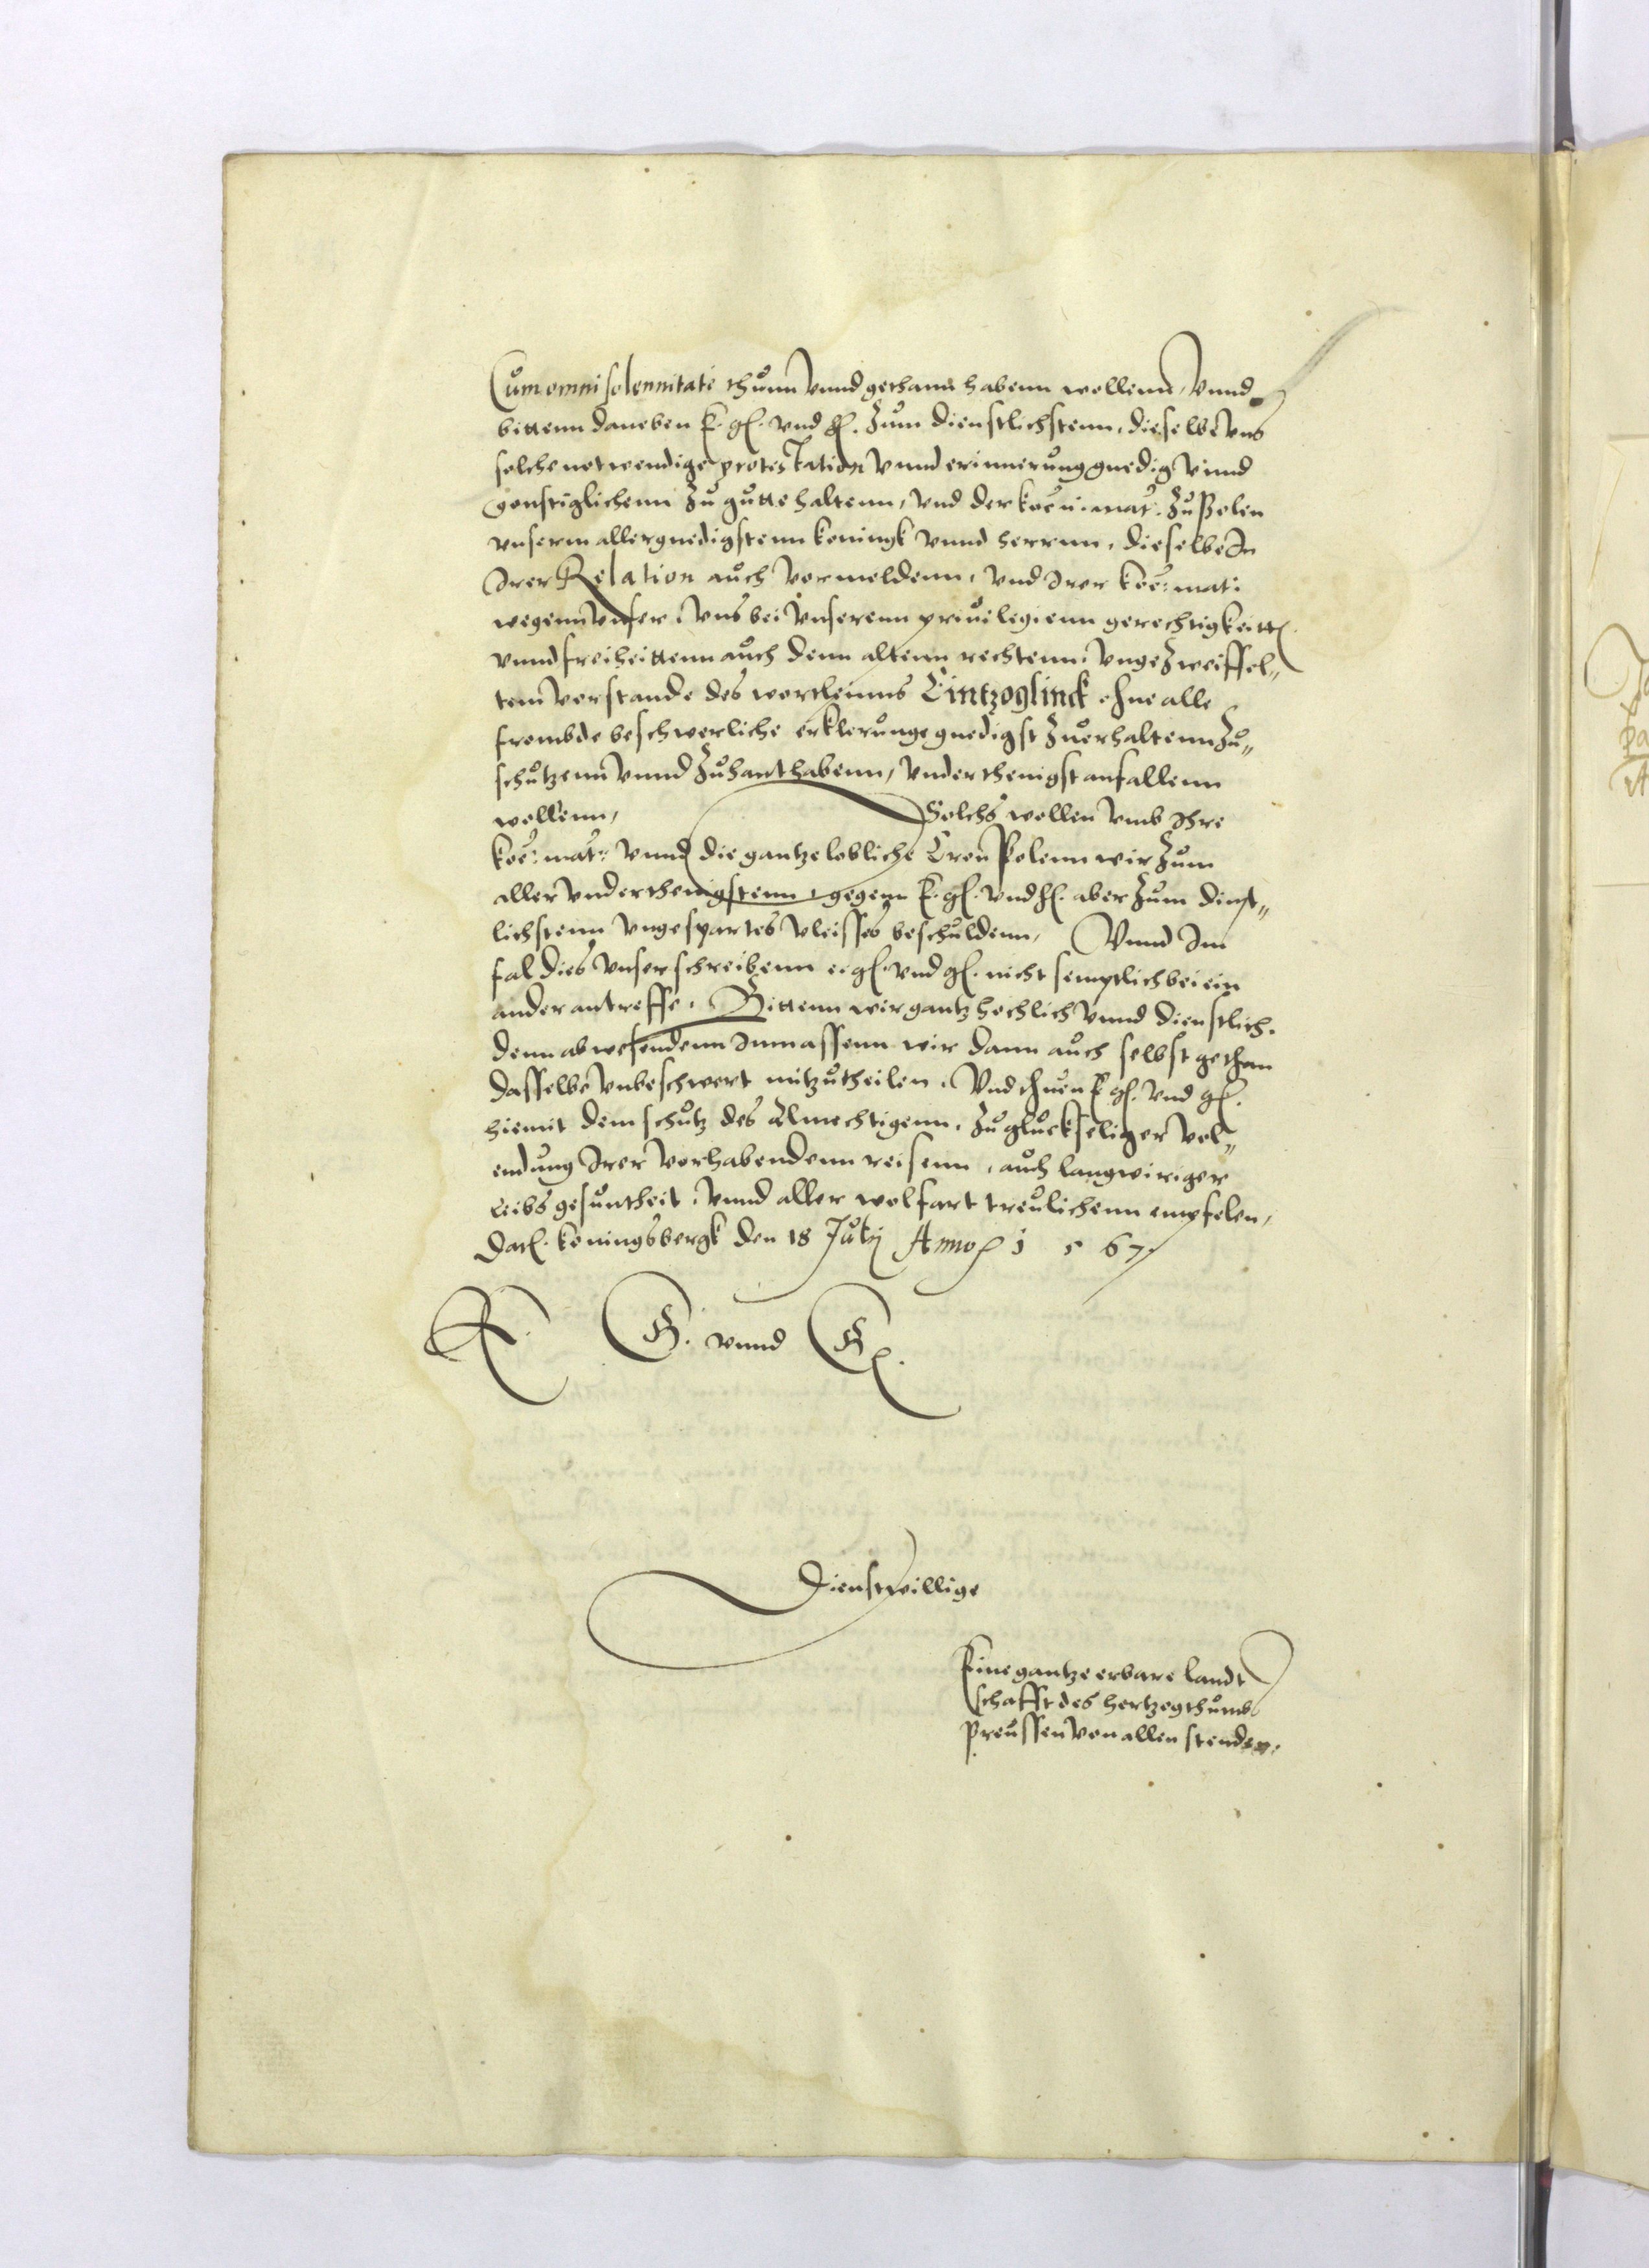 Cum omni solennitate thunn vnnd gethann habenn wollenn, vnnd
bittenn daneben E. g. vnd g. zum dienstlichstenn, dieselbe vns
solche notwendige protestation vnnd erinnerung gnedig vnnd
gonstiglichenn zu gutte haltenn, vnd der koe: mat: zu Polen
vnserm allergnedigstenn koningk vnnd herrnn, dieselbe In
Irer Relation auch vormeldenn, vnd Irer koe: mat:
wegenn vnser, vns bei vnserenn priuilegienn gerechtigkeitt
vnnd freiheittenn auch denn altenn rechtenn, vngezweiffel„
tem verstande des wortleinns Eintzoglinck ohne alle
frembde beschwerliche erklerunge gnedigst zuerhaltenn zu„
schutzenn vnnd zuhanthabenn, vnderthenigst anfallenn
wollenn, Solchs wollen vmb Ihre
koe: mat: vnnd die gantze lobliche Cron Polenn wir zum
aller vnderthenigstenn, gegenn E. g. vnd g. aber zum dinst„
lichstenn vngespartes vleisses beschuldenn, Vnnd Im
fal dies vnser schreibenn e. g. vnd g. nicht semptlich bei ein
ander antreffe, Bittenn wir gantz hochlich vnnd dienstlich,
denn abwesendenn Inmassenn wir dann auch selbst gethan
dasselbe vnbeschwert mitzutheilen, Vnd thuen E. g. vnd g.
hiemit dem schutz des Almechtigenn, zu gluckseliger vol„
endung Irer vorhabendenn reisenn, auch langwiriger
leibs gesuntheit, vnnd aller wolfart treulichenn empfelen,
Dat. koningsbergk den 18 July Anno 1567
E. G. vnnd G.
Dienstwillige
Eine gantze erbare landt
schafft des hertzogthumb
Preussen von allen stenden,